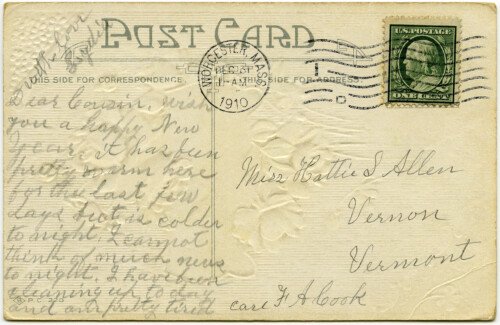 with love
POST CARD
THIS SIDE FOR CORRESPONDENCE.
THIS SIDE FOR ADDRESS.
WORCESTER, MASS.
DEC 31
11-AM
1910
1
U.S. POSTAGE
ONE CENT
Dear Cousin, wish
you a happy New
Year, it has been
pretty warm here
for the last few
days but is colder
to night, I cannot
think of much news
to night, I have been
cleaning up to day
and am pretty tired
Miss Hattie I Allen
Vernon
Vermont
care F A Cook